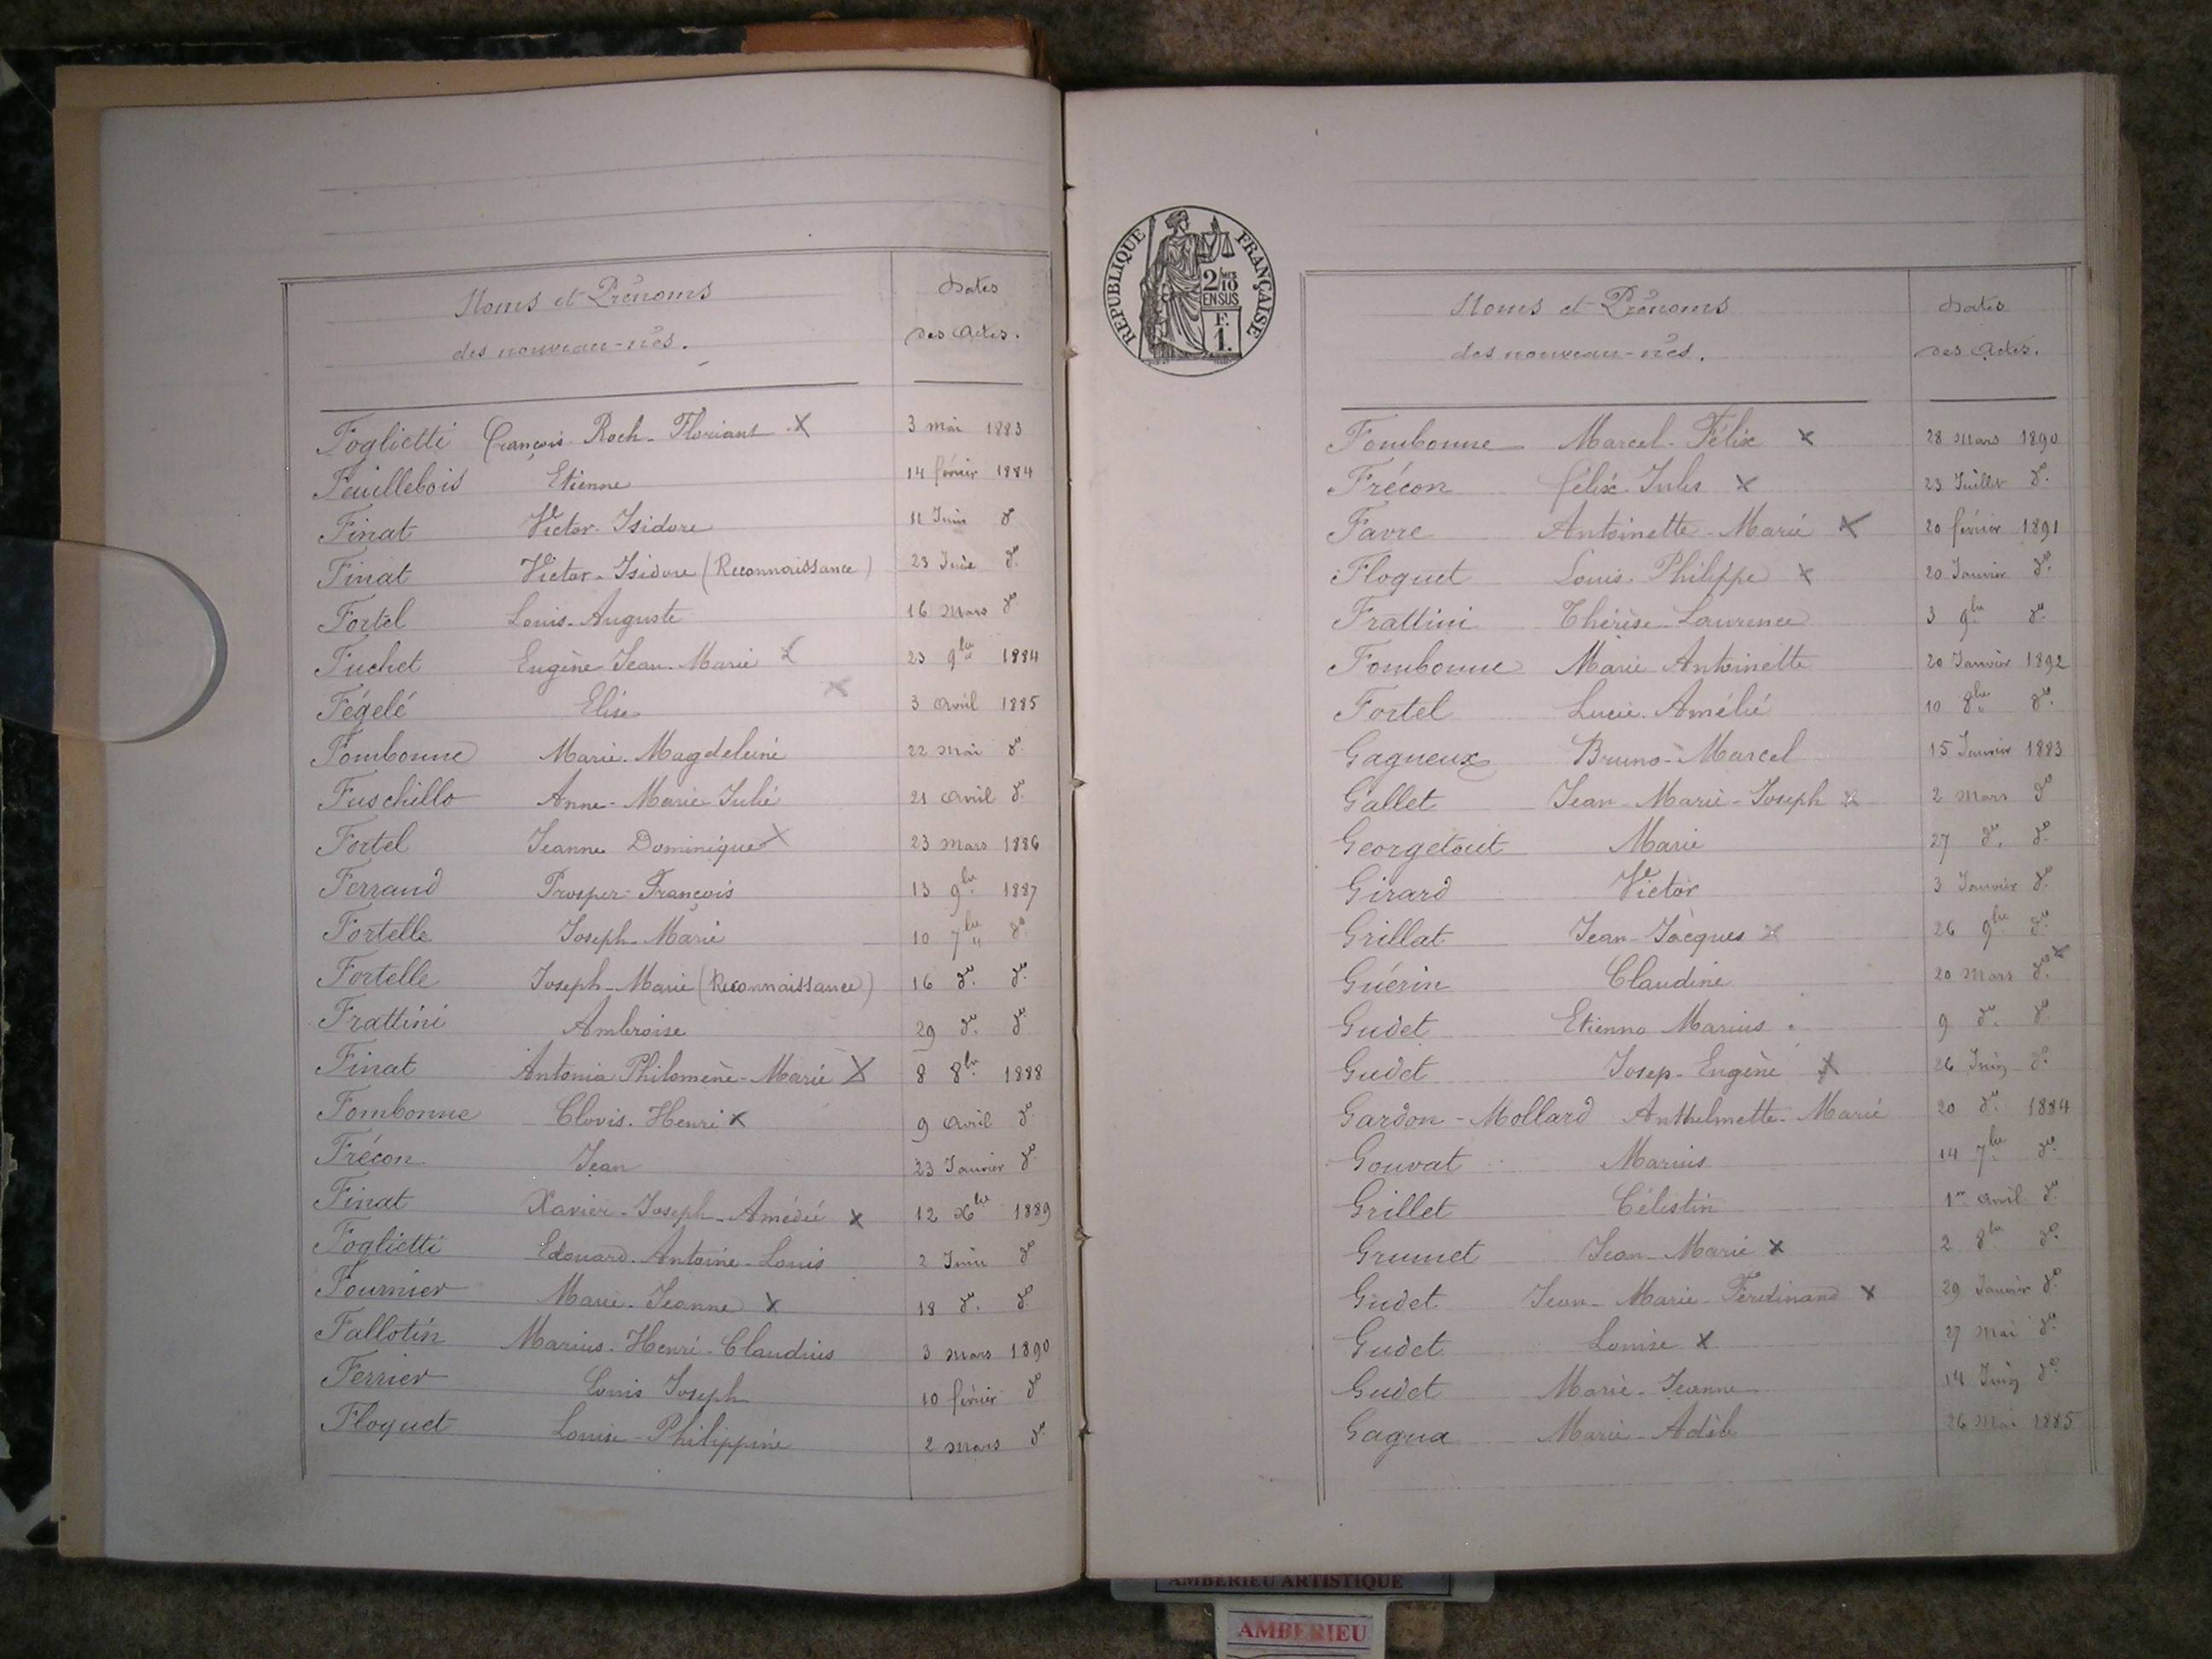 Noms et Prénoms
des nouveau-nés.
Dates
des Actes.
Foglietti François-Roch-Floriant X 3 mai 1883
Feuillebois Etienne 14 février 1884
Finat Victor-Isidore 11 Juin do
Finat Victor-Isidore (Reconnaissance) 23 Juin do
Fortel Louis-Auguste 16 mars do
Fuchet Eugène-Jean-Marie X 23 9bre 1884
Fégelé Elise X 3 avril 1885
Fombonne Marie-Magdeleine 22 mai do
Fuschillo Anne-Marie-Julie 21 avril do
Fortel Jeanne Dominique X 23 mars 1886
Ferrand Prosper-François 13 9bre 1887
Fortelle Joseph-Marie 10 7bre do
Fortelle Joseph-Marie (Reconnaissance) 16 do do
Frattini Ambroise 29 do do
Finat Antonia Philomène-Marie X 8 8bre 1888
Fombonne Clovis-Henri X 9 avril do
Frécon Jean 23 Janvier do
Finat Xavier-Joseph-Amédée X 12 Xbre 1889
Foglietti Edouard-Antoine-Louis 2 Juin do
Fournier Marie-Jeanne X 18 do do
Fallotin Marius-Henri-Claudius 3 mars 1890
Ferrier Louis Joseph 10 février do
Floquet Louise-Philippine 2 mars do
REPUBLIQUE FRANÇAISE
2/10 MES
EN SUS
F.
1.
Noms et Prénoms
des nouveau-nés.
Dates
des Actes.
Fombonne Marcel-Félix X 28 mars 1890
Frécon Félix Jules X 23 Juillet do
Favre Antoinette-Marie X 20 février 1891
Floquet Louis-Philippe X 20 Janvier do
Frattini Thérèse-Laurence 3 9bre do
Fombonne Marie Antoinette 20 Janvier 1892
Fortel Lucie-Amélie 10 8bre do
Gagneux Bruno-Marcel 15 Janvier 1883
Gallet Jean-Marie-Joseph X 2 mars do
Georgetout Marie 27 do do
Girard Victor 3 Janvier do
Grillat Jean-Jacques X 26 9bre do
Guérin Claudine 20 mars do X
Gudet Etienne Marius 9 do do
Gudet Josep-Eugène X 26 Juin do
Gardon-Mollard Anthelmette-Marie 20 do 1884
Gouvat Marius 14 7bre do
Grillet Célestin 1er avril do
Grumet Jean-Marie X 2 8bre do
Gudet Jean-Marie-Ferdinand X 29 Janvier do
Gudet Louise X 27 mai do
Gudet Marie-Jeanne 14 Juin do
Gagna Marie-Adèle 26 mai 1885
AMBERIEU ARTISTIQUE
AMBERIEU